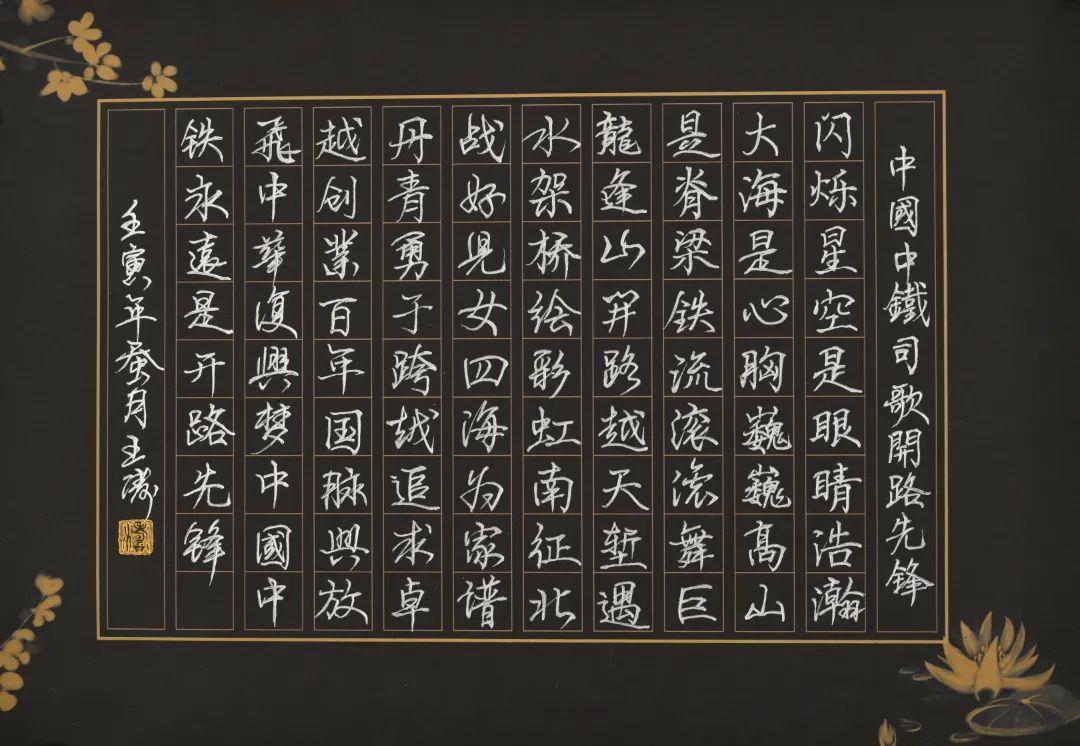 中國中鐵司歌開路先锋
闪烁星空是眼睛浩瀚
大海是心胸巍巍高山
是脊梁铁流滚滚舞巨
龍逢山開路越天堑遇
水架桥绘彩虹南征北
战好児女四海为家谱
丹青勇于跨越追求卓
越创業百年国脉興放
飛中華復興梦中國中
铁永遠是开路先锋
壬寅年蚕月王涛